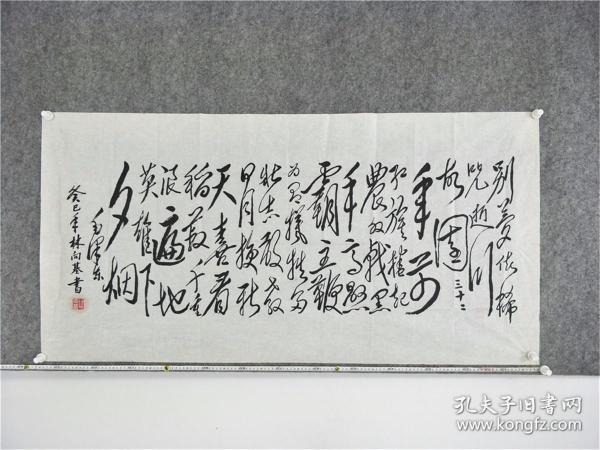 别夢依稀
咒逝川
故園三十二
年前
红旗捲起
農奴戟黑
手高懸
霸主鞭
为有犧牲多
壮志敢教
日月换新
天喜看
稻菽千重
浪遍地
英雄下
夕烟
毛澤东
癸巳年林向基書
孔夫子旧书网
www.kongfz.com